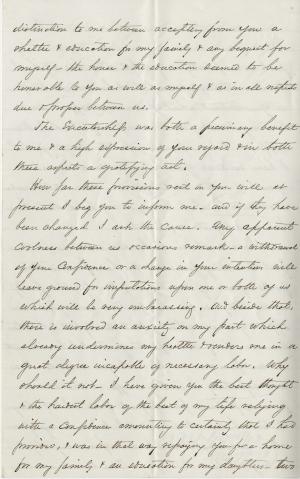 distinction to me between accepting from you a
shelter & education for my family & any bequest for
myself – the home & the education seemed to be
honorable to you as well as myself & as in all respects
due & proper between us.
The Executorship was both a pecuniary benefit
to me & a high expression of your regard & in both
these aspects a gratifying act.
How far these provisions exist in your will at
present I beg you to inform me – and if they have
been changed I ask the cause. Any apparent
coolness between us occasions remark – a withdrawal
of your Confidence or a change in your intention will
leave ground for imputations upon one or both of us
which will be very embarassing. And beside that,
there is involved an anxiety on my part which
already undermines my health & renders me in a
great degree incapable of necessary labor. Why
should it not – I have given you the best thought
& the hardest labor of the best of my life relying
with a Confidence amounting to certainty that I had
provided, & was in that way repaying you for a home
for my family & an education for my daughters – two